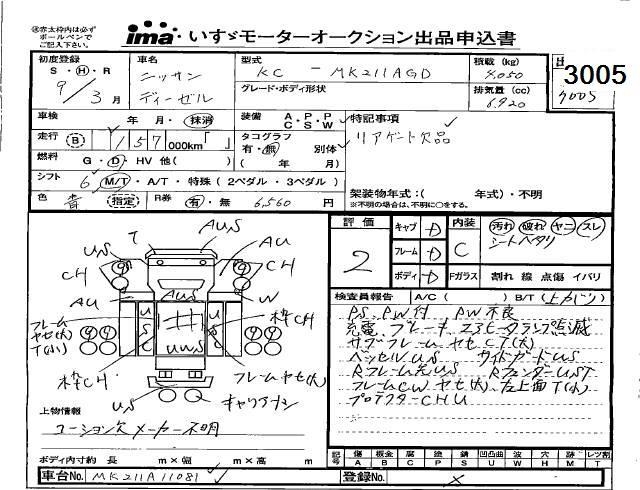 ※赤太枠内は必ず
ボールペンで
ご記入下さい。
ima いすゞモーターオークション出品申込書
初度登録 車名 型式 積載(kg)
S・H・R ニッサン KC - MK211AGD 4,050
9/3月 ディーゼル グレード・ボディ形状 排気量(cc)
6,920
3005
4005
車検 年 月・抹消 装備 A・P・P C・S・W 特記事項
走行 B 157 000km「 」 タコグラフ リアゲート欠品
有・無 別体
燃料 G・D・HV 他( ) ( 年 月)
シフト 6 M/T・A/T・特殊(2ペダル・3ペダル) 架装物年式:( 年式)・不明
※不明の場合は、不明に○をする。
色 青 指定 R券 有・無 6,560 円
評価 キャブ D 内装 汚れ 破れ ヤニ スレ
2 フレーム D C シートヘタリ
ボディ D Fガラス 割れ 線 点傷 イバリ
T AUS
US AU
CH CH
AU AUS W
フレーム
ヤセ(大)
T(小)
枠CH
UWS
枠CH フレームヤセ(大)
US キャリアナシ
検査員報告 A/C( ) B/T(上カバ)
PS、PW付 PW不良
充電、ブレーキ、エヌヒータランプ点滅
サブフレームヤセCT(大)
ベッセルUS サイドガードUS
RフレームUS RフェンダーUST
フレームCWヤセ(大)、左上面T(小)
プロテクターCHU
上物情報
コーション欠 メーカー不明
ボディ内寸約 長 m×幅 m×高 m
記号 傷 板金 腐 塗 錆 凹凸曲 波 穴 跡 レツ割
A B C P S U W H M T
車台No. MK211A11081 登録No.